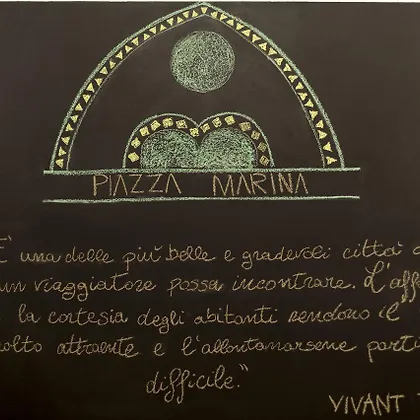 PIAZZA MARINA
E' una delle più belle e gradevoli città
un viaggiatore possa incontrare. L'aff
la cortesia degli abitanti rendono il
molto attraente e l'allontanarsene parti
difficile."
VIVANT